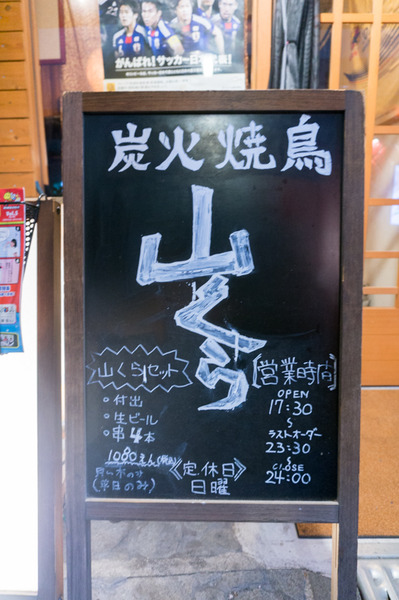 がんばれ!サッカー日本代表!
炭火焼鳥
山くら
山くらセット
○付出
○生ビール
○串4本
1080えん(税込)
月い水の才
(平日のみ)
《定休日》
日曜
【営業時間】
OPEN
17:30
〜
ラストオーダー
23:30
〜
CLOSE
24:00